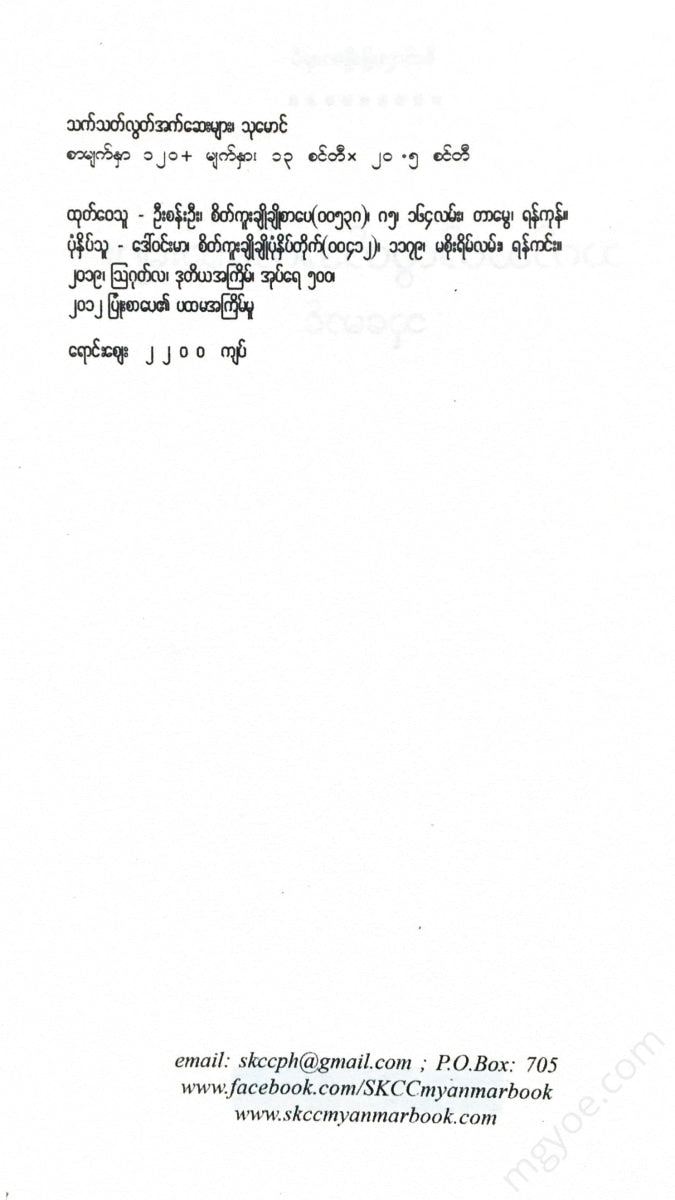 သက်သတ်လွတ်အက်ဆေးများ၊ သုမောင်
စာမျက်နှာ ၁၂၀+ မျက်နှာ၊ ၁၃ စင်တီ× ၂၀.၅ စင်တီ
ထုတ်ဝေသူ - ဦးစန်းဦး၊ စိတ်ကူးချိုချိုစာပေ(၀၀၅၃၈)၊ ဂ၅၊ ၁၆၄လမ်း၊ တာမွေ၊ ရန်ကုန်။
ပုံနှိပ်သူ - ဒေါ်ဝင်းမာ၊ စိတ်ကူးချိုချိုပုံနှိပ်တိုက်(၀၀၄၁၂)၊ ၁၁၇၉၊ မစိုးရိမ်လမ်း၊ ရန်ကင်း။
၂၀၁၉၊ ဩဂုတ်လ၊ ဒုတိယအကြိမ်၊ အုပ်ရေ ၅၀၀၊
၂၀၁၂ ပြုံးစာပေ၏ ပထမအကြိမ်မူ
ရောင်းဈေး ၂၂၀၀ ကျပ်
email: skccph@gmail.com ; P.O.Box: 705
www.facebook.com/SKCCmyanmarbook
www.skccmyanmarbook.com
mgyoe.com